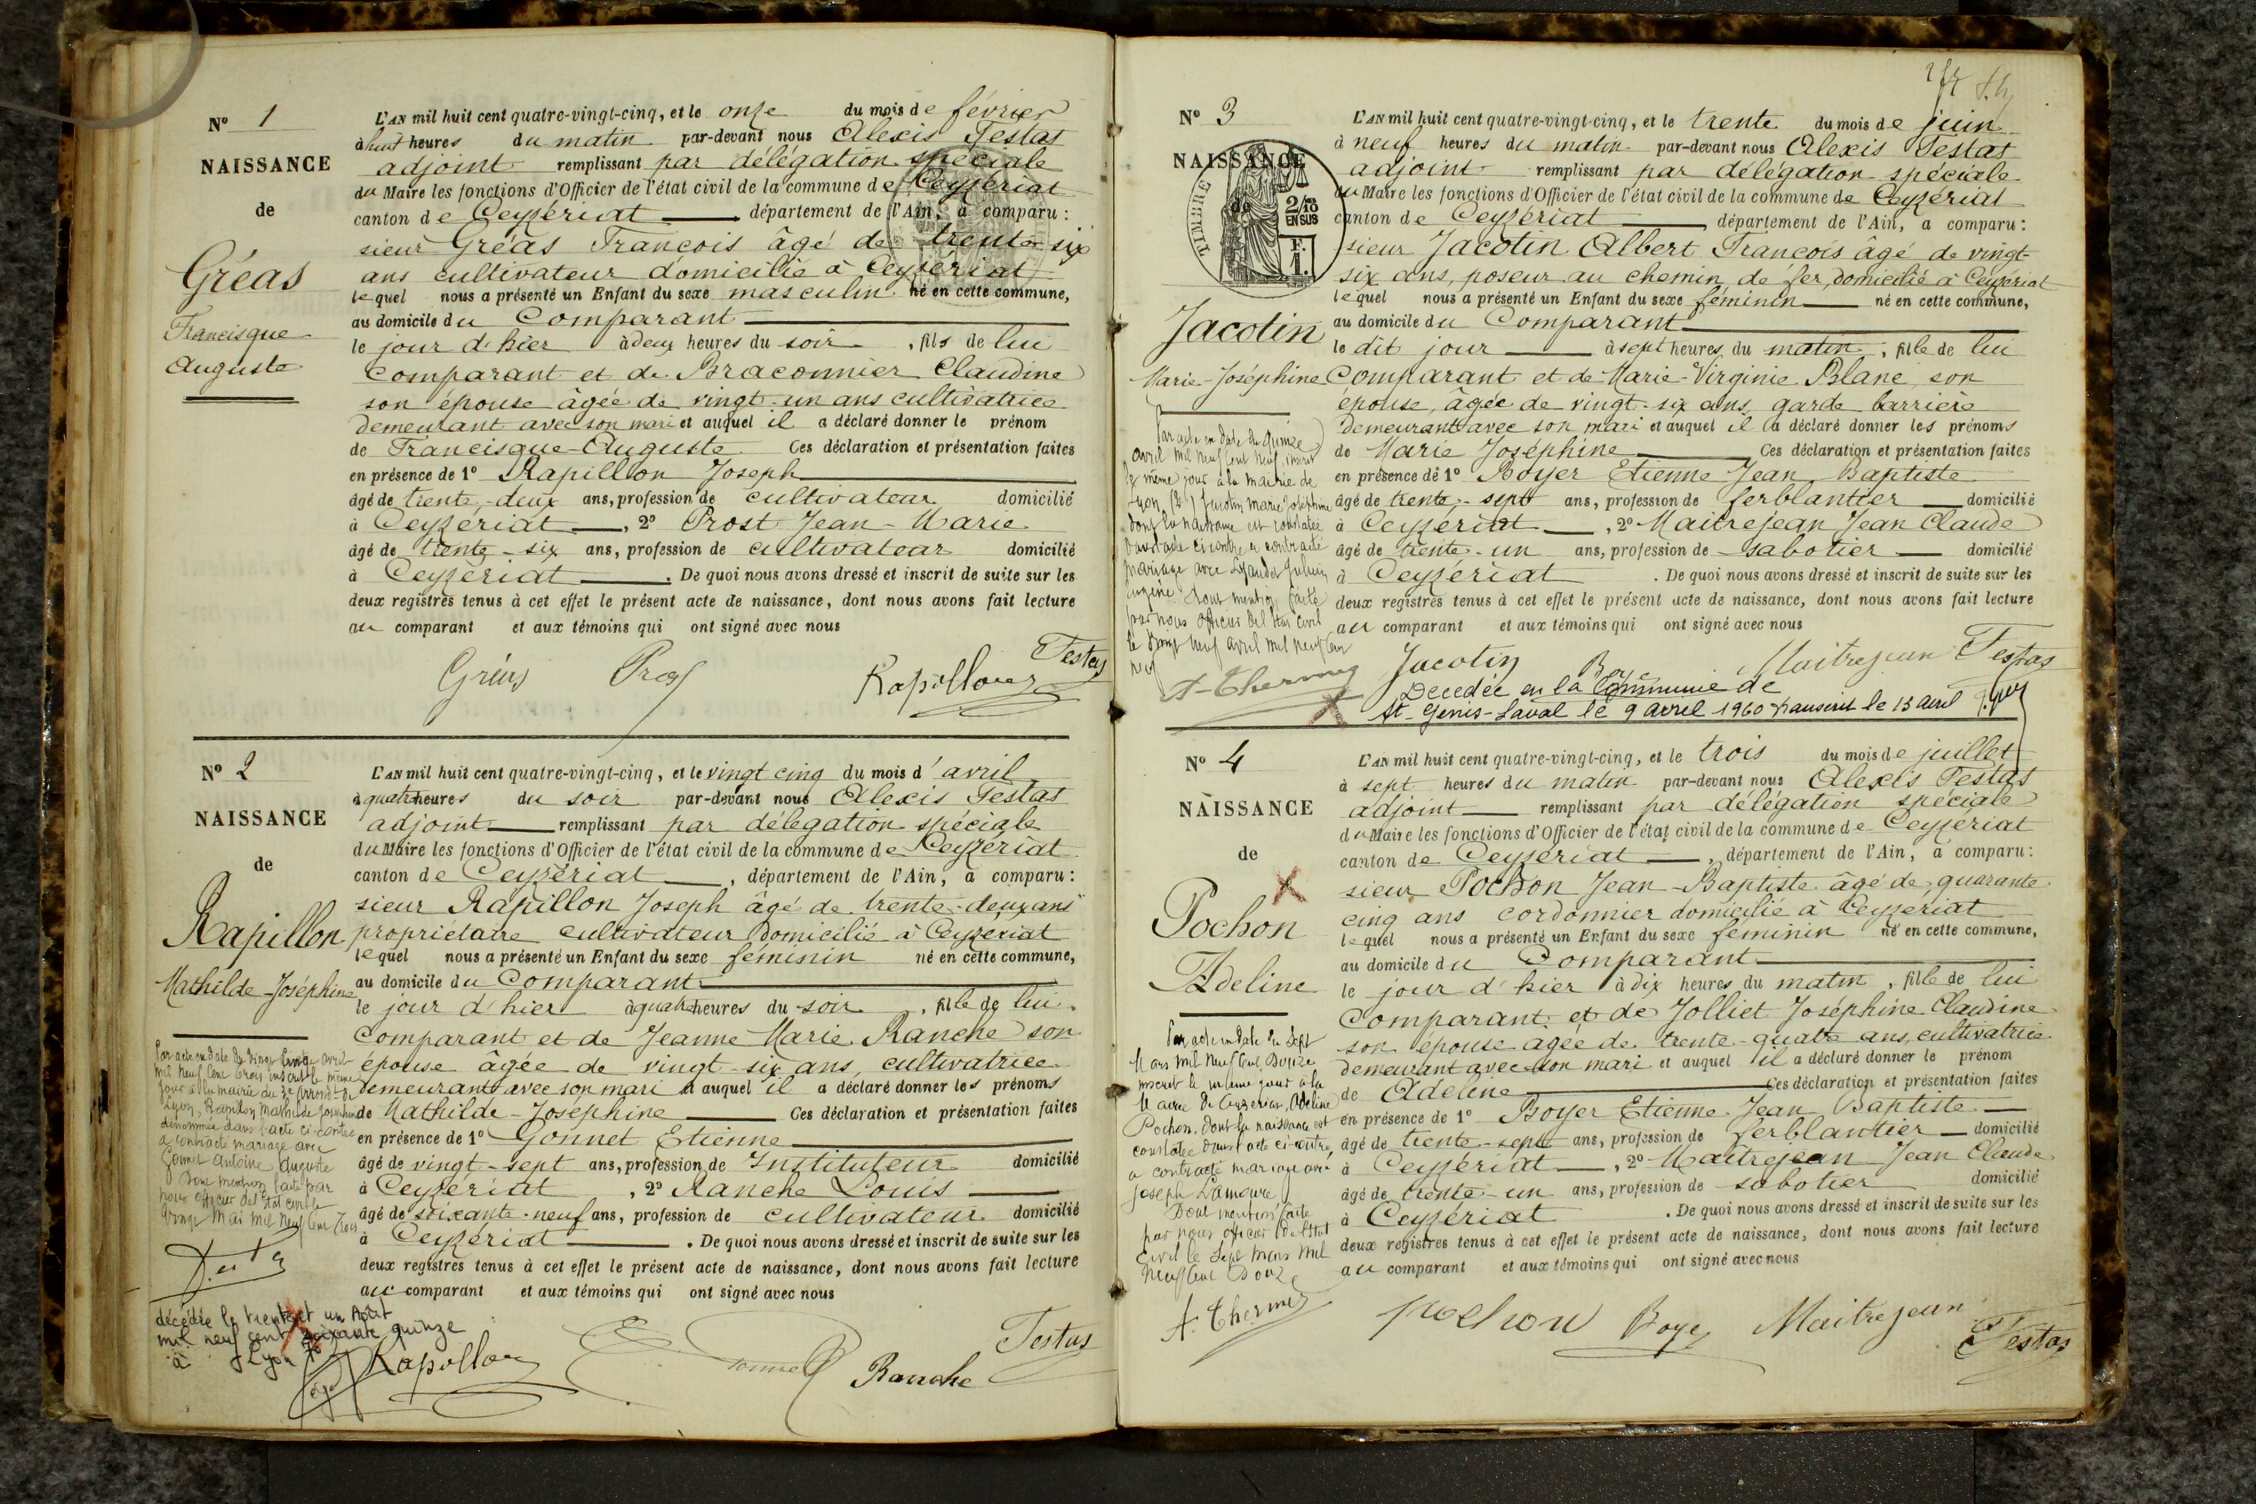 Nº 1
NAISSANCE
de
Gréas
Francisque
Auguste
L'AN mil huit cent quatre-vingt-cinq, et le onze du mois de février
à huit heures du matin par-devant nous Alexis Testas
adjoint remplissant par délégation spéciale
du Maire les fonctions d'Officier de l'état civil de la commune de Ceyzériat
canton de Ceyzériat département de l'Ain, a comparu :
sieur Gréas François âgé de trente six
ans cultivateur domicilié à Ceyzériat
lequel nous a présenté un Enfant du sexe masculin né en cette commune,
au domicile du Comparant
le jour d'hier à deux heures du soir, fils de lui
comparant et de Braconnier Claudine
son épouse âgée de vingt-un ans cultivatrice
demeurant avec son mari et auquel il a déclaré donner le prénom
de Francisque-Auguste Ces déclaration et présentation faites
en présence de 1º Rapillon Joseph
âgé de trente-deux ans, profession de cultivateur domicilié
à Ceyzériat, 2º Prost Jean-Marie
âgé de trente-six ans, profession de cultivateur domicilié
à Ceyzériat. De quoi nous avons dressé et inscrit de suite sur les
deux registres tenus à cet effet le présent acte de naissance, dont nous avons fait lecture
au comparant et aux témoins qui ont signé avec nous
Gréas Rapillon Testas
Nº 2
NAISSANCE
de
Rapillon
Mathilde-Joséphine
Par acte en date du vingt cinq avril
mil neuf cent trois inscrit le même
jour à la mairie du 3e arrond^t de
Lyon, Rapillon Mathilde Joséphine
dénommée dans l'acte ci-contre
a contracté mariage avec
Antoine Auguste
Dont mention faite par
nous officier de l'état civil le
mai mil neuf cent trois
décédée le trente et un Août
mil neuf cent soixante quinze
à Lyon
L'AN mil huit cent quatre-vingt-cinq, et le vingt cinq du mois d'avril
à quatre heures du soir par-devant nous Alexis Testas
adjoint remplissant par délégation spéciale
du Maire les fonctions d'Officier de l'état civil de la commune de Ceyzériat
canton de Ceyzériat, département de l'Ain, a comparu :
sieur Rapillon Joseph âgé de trente-deux ans
propriétaire cultivateur domicilié à Ceyzériat
lequel nous a présenté un Enfant du sexe féminin né en cette commune,
au domicile du Comparant
le jour d'hier à quatre heures du soir, fille de lui
comparant et de Jeanne Marie Ranche son
épouse âgée de vingt-six ans, cultivatrice
demeurant avec son mari et auquel il a déclaré donner les prénoms
de Mathilde-Joséphine Ces déclaration et présentation faites
en présence de 1º Gonnet Etienne
âgé de vingt-sept ans, profession de Instituteur domicilié
à Ceyzériat, 2º Ranche Louis
âgé de soixante-neuf ans, profession de cultivateur domicilié
à Ceyzériat. De quoi nous avons dressé et inscrit de suite sur les
deux registres tenus à cet effet le présent acte de naissance, dont nous avons fait lecture
au comparant et aux témoins qui ont signé avec nous
Rapillon Ranche Testas
Nº 3
NAISSANCE
de
TIMBRE
2/10
EN SUS
F.
1.
Jacotin
Marie-Joséphine
Par acte en date du quinze
avril mil neuf cent neuf, inscrit
le même jour à la mairie de
Lyon (2e) Jacotin Marie Joséphine
dont la naissance est constatée
dans l'acte ci contre a contracté
mariage avec
Eugène. Dont mention faite
par nous officier de l'état civil
le vingt neuf avril mil neuf cent
neuf
A. Thermes
L'AN mil huit cent quatre-vingt-cinq, et le trente du mois de juin
à neuf heures du matin par-devant nous Alexis Testas
adjoint remplissant par délégation spéciale
du Maire les fonctions d'Officier de l'état civil de la commune de Ceyzériat
canton de Ceyzériat département de l'Ain, a comparu :
sieur Jacotin Albert François âgé de vingt-
six ans, poseur au chemin de fer, domicilié à Ceyzériat
lequel nous a présenté un Enfant du sexe féminin né en cette commune,
au domicile du Comparant
le dit jour à sept heures du matin, fille de lui
Comparant et de Marie-Virginie Blanc, son
épouse, âgée de vingt-six ans, garde barrière
demeurant avec son mari et auquel il a déclaré donner les prénoms
de Marie Joséphine Ces déclaration et présentation faites
en présence de 1º Boyer Etienne Jean Baptiste
âgé de trente-sept ans, profession de ferblantier domicilié
à Ceyzériat, 2º Maitrejean Jean Claude
âgé de trente-un ans, profession de sabotier domicilié
à Ceyzériat. De quoi nous avons dressé et inscrit de suite sur les
deux registres tenus à cet effet le présent acte de naissance, dont nous avons fait lecture
au comparant et aux témoins qui ont signé avec nous
Jacotin Boyer Maitrejean Testas
Décédée en la Commune de
St-Genis-Laval le 9 avril 1960 transcrit le 13 avril
Nº 4
NAISSANCE
de
Pochon
Adeline
Par acte en date du Sept
Mars mil neuf cent Douze
inscrit le même jour à la
Mairie de Ceyzériat, Adeline
Pochon, dont la naissance est
constatée dans l'acte ci-contre,
a contracté mariage avec
Joseph Lamoure
Dont mention faite
par nous officier de l'état
civil le Sept Mars mil
neuf cent Douze
A. Thermes
L'AN mil huit cent quatre-vingt-cinq, et le trois du mois de juillet
à sept heures du matin par-devant nous Alexis Testas
adjoint remplissant par délégation spéciale
du Maire les fonctions d'Officier de l'état civil de la commune de Ceyzériat
canton de Ceyzériat, département de l'Ain, a comparu :
sieur Pochon Jean-Baptiste âgé de quarante
cinq ans cordonnier domicilié à Ceyzériat
lequel nous a présenté un Enfant du sexe féminin né en cette commune,
au domicile du Comparant
le jour d'hier à dix heures du matin, fille de lui
Comparant et de Jolliet Joséphine Claudine
son épouse agée de trente-quatre ans, cultivatrice
demeurant avec son mari et auquel il a déclaré donner le prénom
de Adeline Ces déclaration et présentation faites
en présence de 1º Boyer Etienne Jean Baptiste
âgé de trente-sept ans, profession de ferblantier domicilié
à Ceyzériat, 2º Maitrejean Jean Claude
âgé de trente-un ans, profession de sabotier domicilié
à Ceyzériat. De quoi nous avons dressé et inscrit de suite sur les
deux registres tenus à cet effet le présent acte de naissance, dont nous avons fait lecture
au comparant et aux témoins qui ont signé avec nous
Pochon Boyer Maitrejean Testas